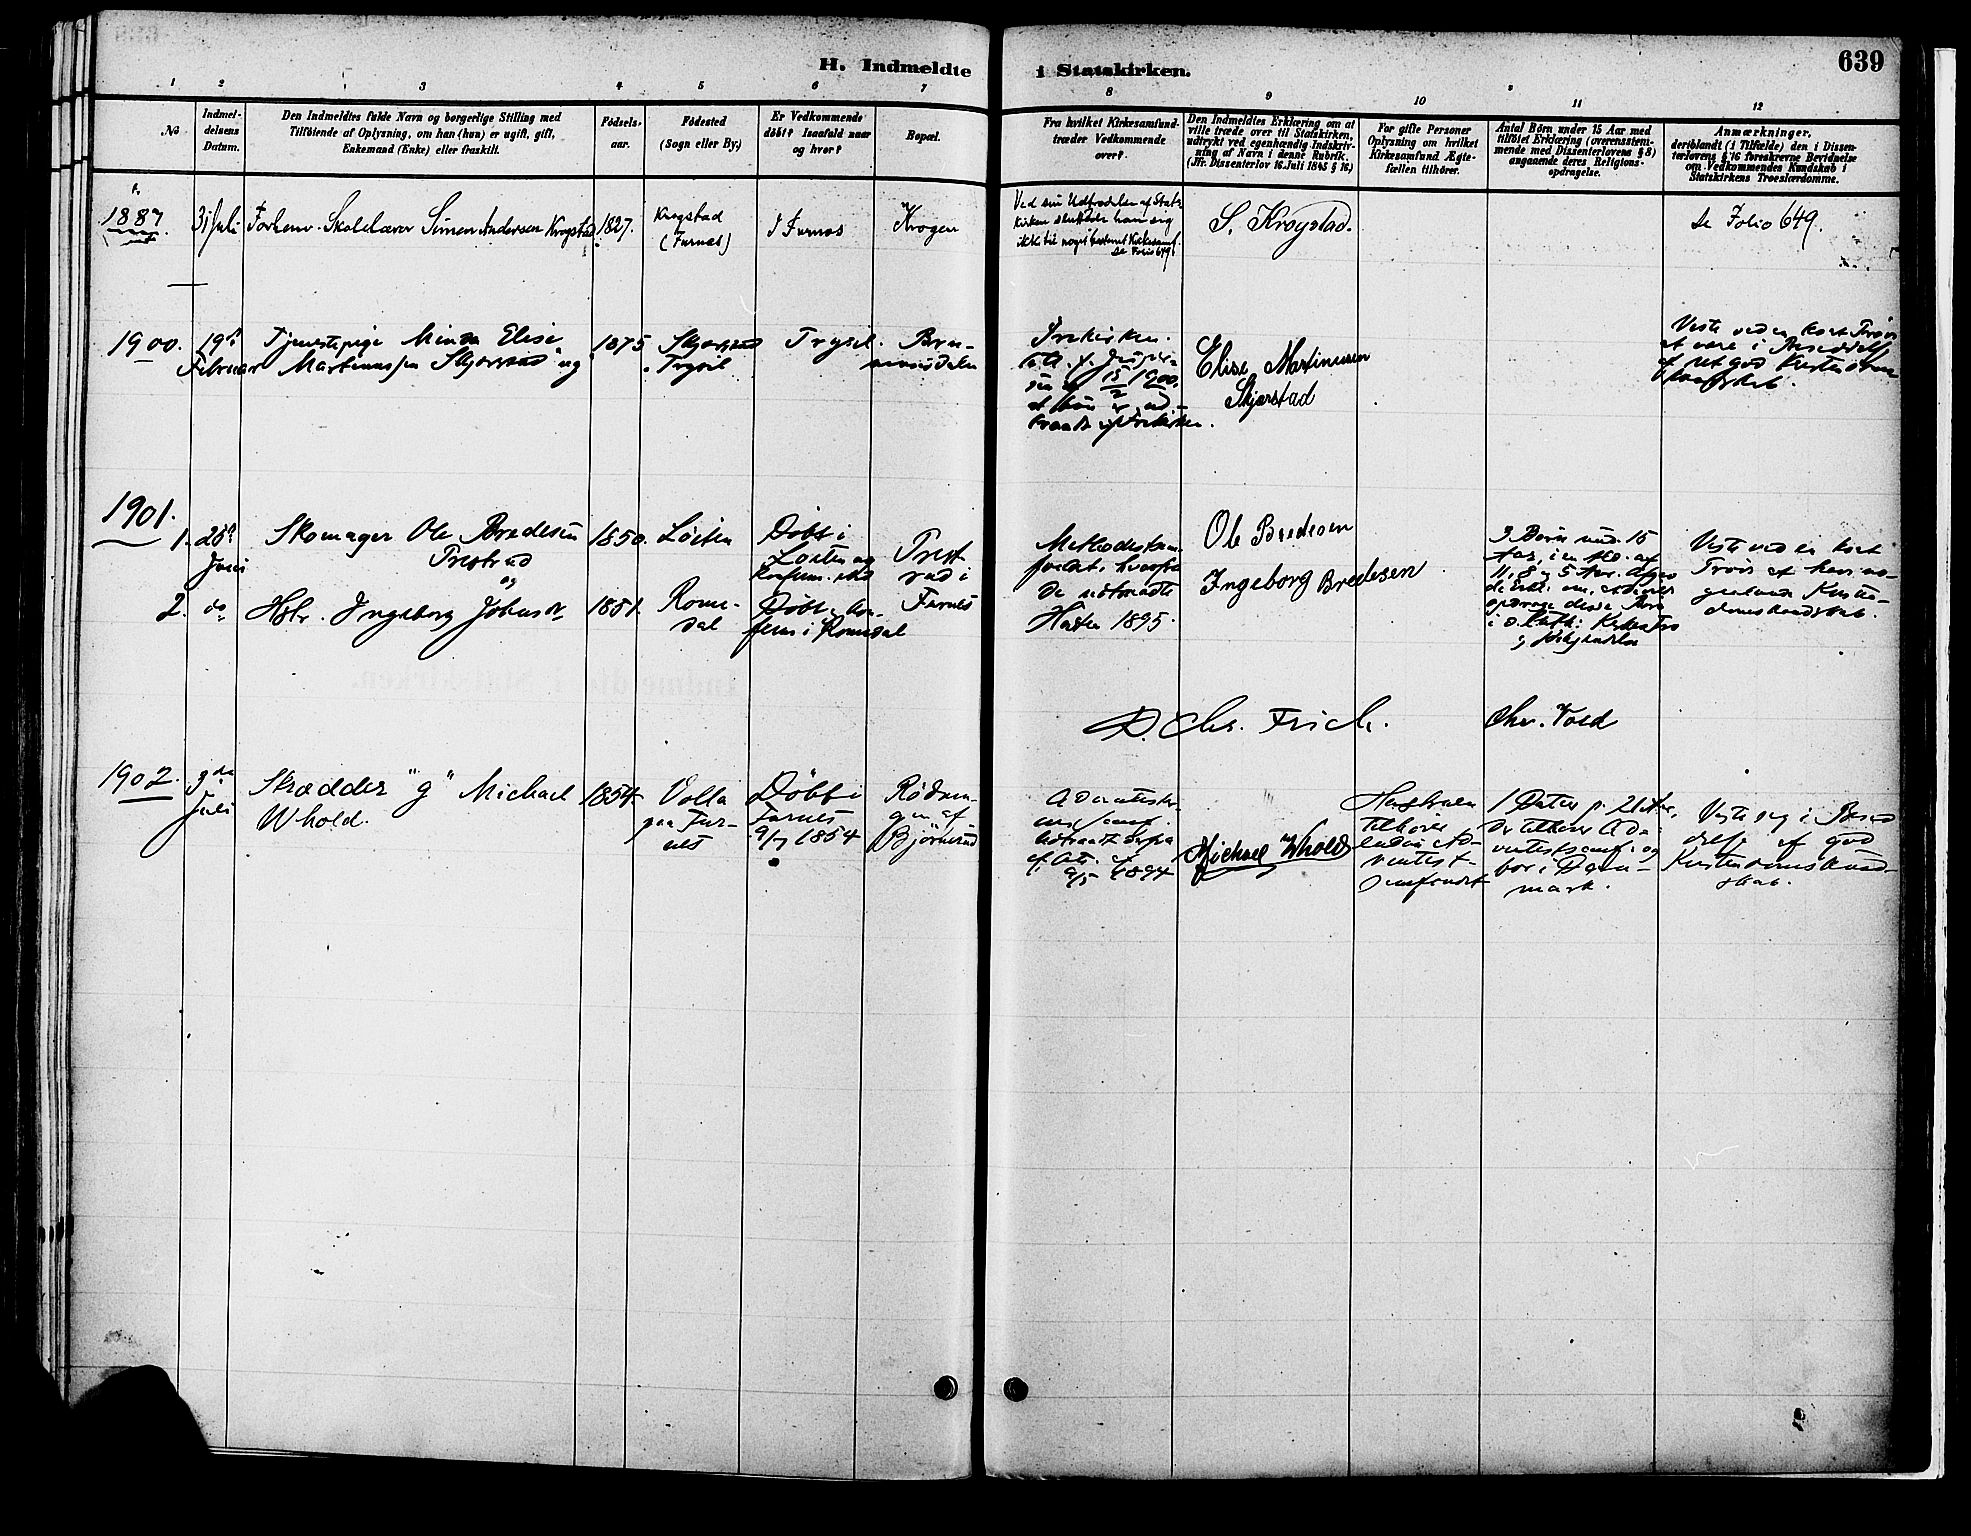 H. Indmeldte i Statskirken.
639
1 2 3 4 5 6 7 8 9 10 11 12
No
Indmel-
delsens
Datum.
Den Indmeldtes fulde Navn og borgerlige Stilling med
Tilføiende af Oplysning, om han (hun) er ugift, gift,
Enkemand (Enke) eller fraskilt.
Fødsels-
aar.
Fødested
(Sogn eller By.)
Er Vedkommende
døbt? Isaafald naar
og hvor?
Bopæl.
Fra hvilket Kirkesamfund
træder Vedkommende
over?
Den Indmeldtes Erklæring om at
ville træde over til Statskirken,
udtrykt ved egenhændig Indskriv-
ning af Navn i denne Rubrik.
(Jfr. Dissenterlov 16. Juli 1845 § 16.)
For gifte Personer
Oplysning om hvilket
Kirkesamfund Ægte-
fællen tilhører.
Antal Børn under 15 Aar med
tilføiet Erklæring (overensstem-
mende med Dissenterlovens § 8)
angaaende deres Religions-
opdragelse.
Anmærkninger,
deriblandt (i Tilfælde) den i Dissen-
terlovens § 16 foreskrevne Bevidnelse
om Vedkommendes Kundskab i
Statskirkens Troeslærdomme.
1887
31 Juli
Forhenv. Skolelærer Simen Andersen Krogstad
1827.
Krogstad
(Furnæs)
I Furnæs
Krogen
Ved sin Udtrædelse af Stats-
kirken sluttede han sig
ikke til noget bestemt Kirkesamf.
Se Folio 649.
S. Krogstad.
Se Folio 649.
1900.
19de
Februar
Tjenestepige Minda Elise
Martinussen Skjærstad "ug"
1875
Skjærstad
Trysil
Trysil
Frikirken.
15/2 1900.
Elise Martinusen
Skjærstad
Veste ved en kort Prøve
at være i Besiddelse
af
1901.
1. 28de
Juni
Skomager Ole Bredesen
Prestrud
og
1850.
Løiten
Døbt i
Løiten og
konfirm.
Prest-
rud i
Furnes
2. do
Hstr. Ingeborg Johnsdr
1851.
Rome-
dal
Døbt og kon-
firm. i Romedal
Methodistsam-
fundet, hvorfra
de udtraadte
Høsten 1895.
Ole Bredesen
Ingeborg Bredesen
3 Børn und. 15
Aar, i en Ald. af
11, 8 og 5 Aar.
Veste ved en kort
Prøve at have
D. Chr. Frich.
Chr. Vold
1902.
3die
Juli
Skrædder "g" Michael
Whold.
1854
Volla
paa Fur-
nes
Døbt i
Furnes
9/7 1854
Rødnin-
gen af
Bjørnerud
Adventist-
samf.
udtraadt derfra
9/5 1894
Michael Whold
Hustruen
tilhører
endnu Ad-
ventist-
samfundet
1 Datter p. 21 Aar,
der tilhører Ad-
ventistsamf. og
bor i Dan-
mark.
Viste sig i Besid-
delse af god
Kristendomskund-
skab.